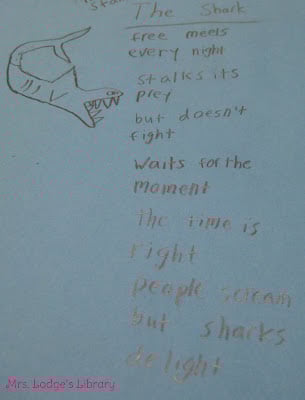 The Shark
free meels
every night
stalks its
prey
but doesn't
fight
Waits for the
moment
the time is
right
people scream
but sharks
delight
Mrs. Lodge's Library